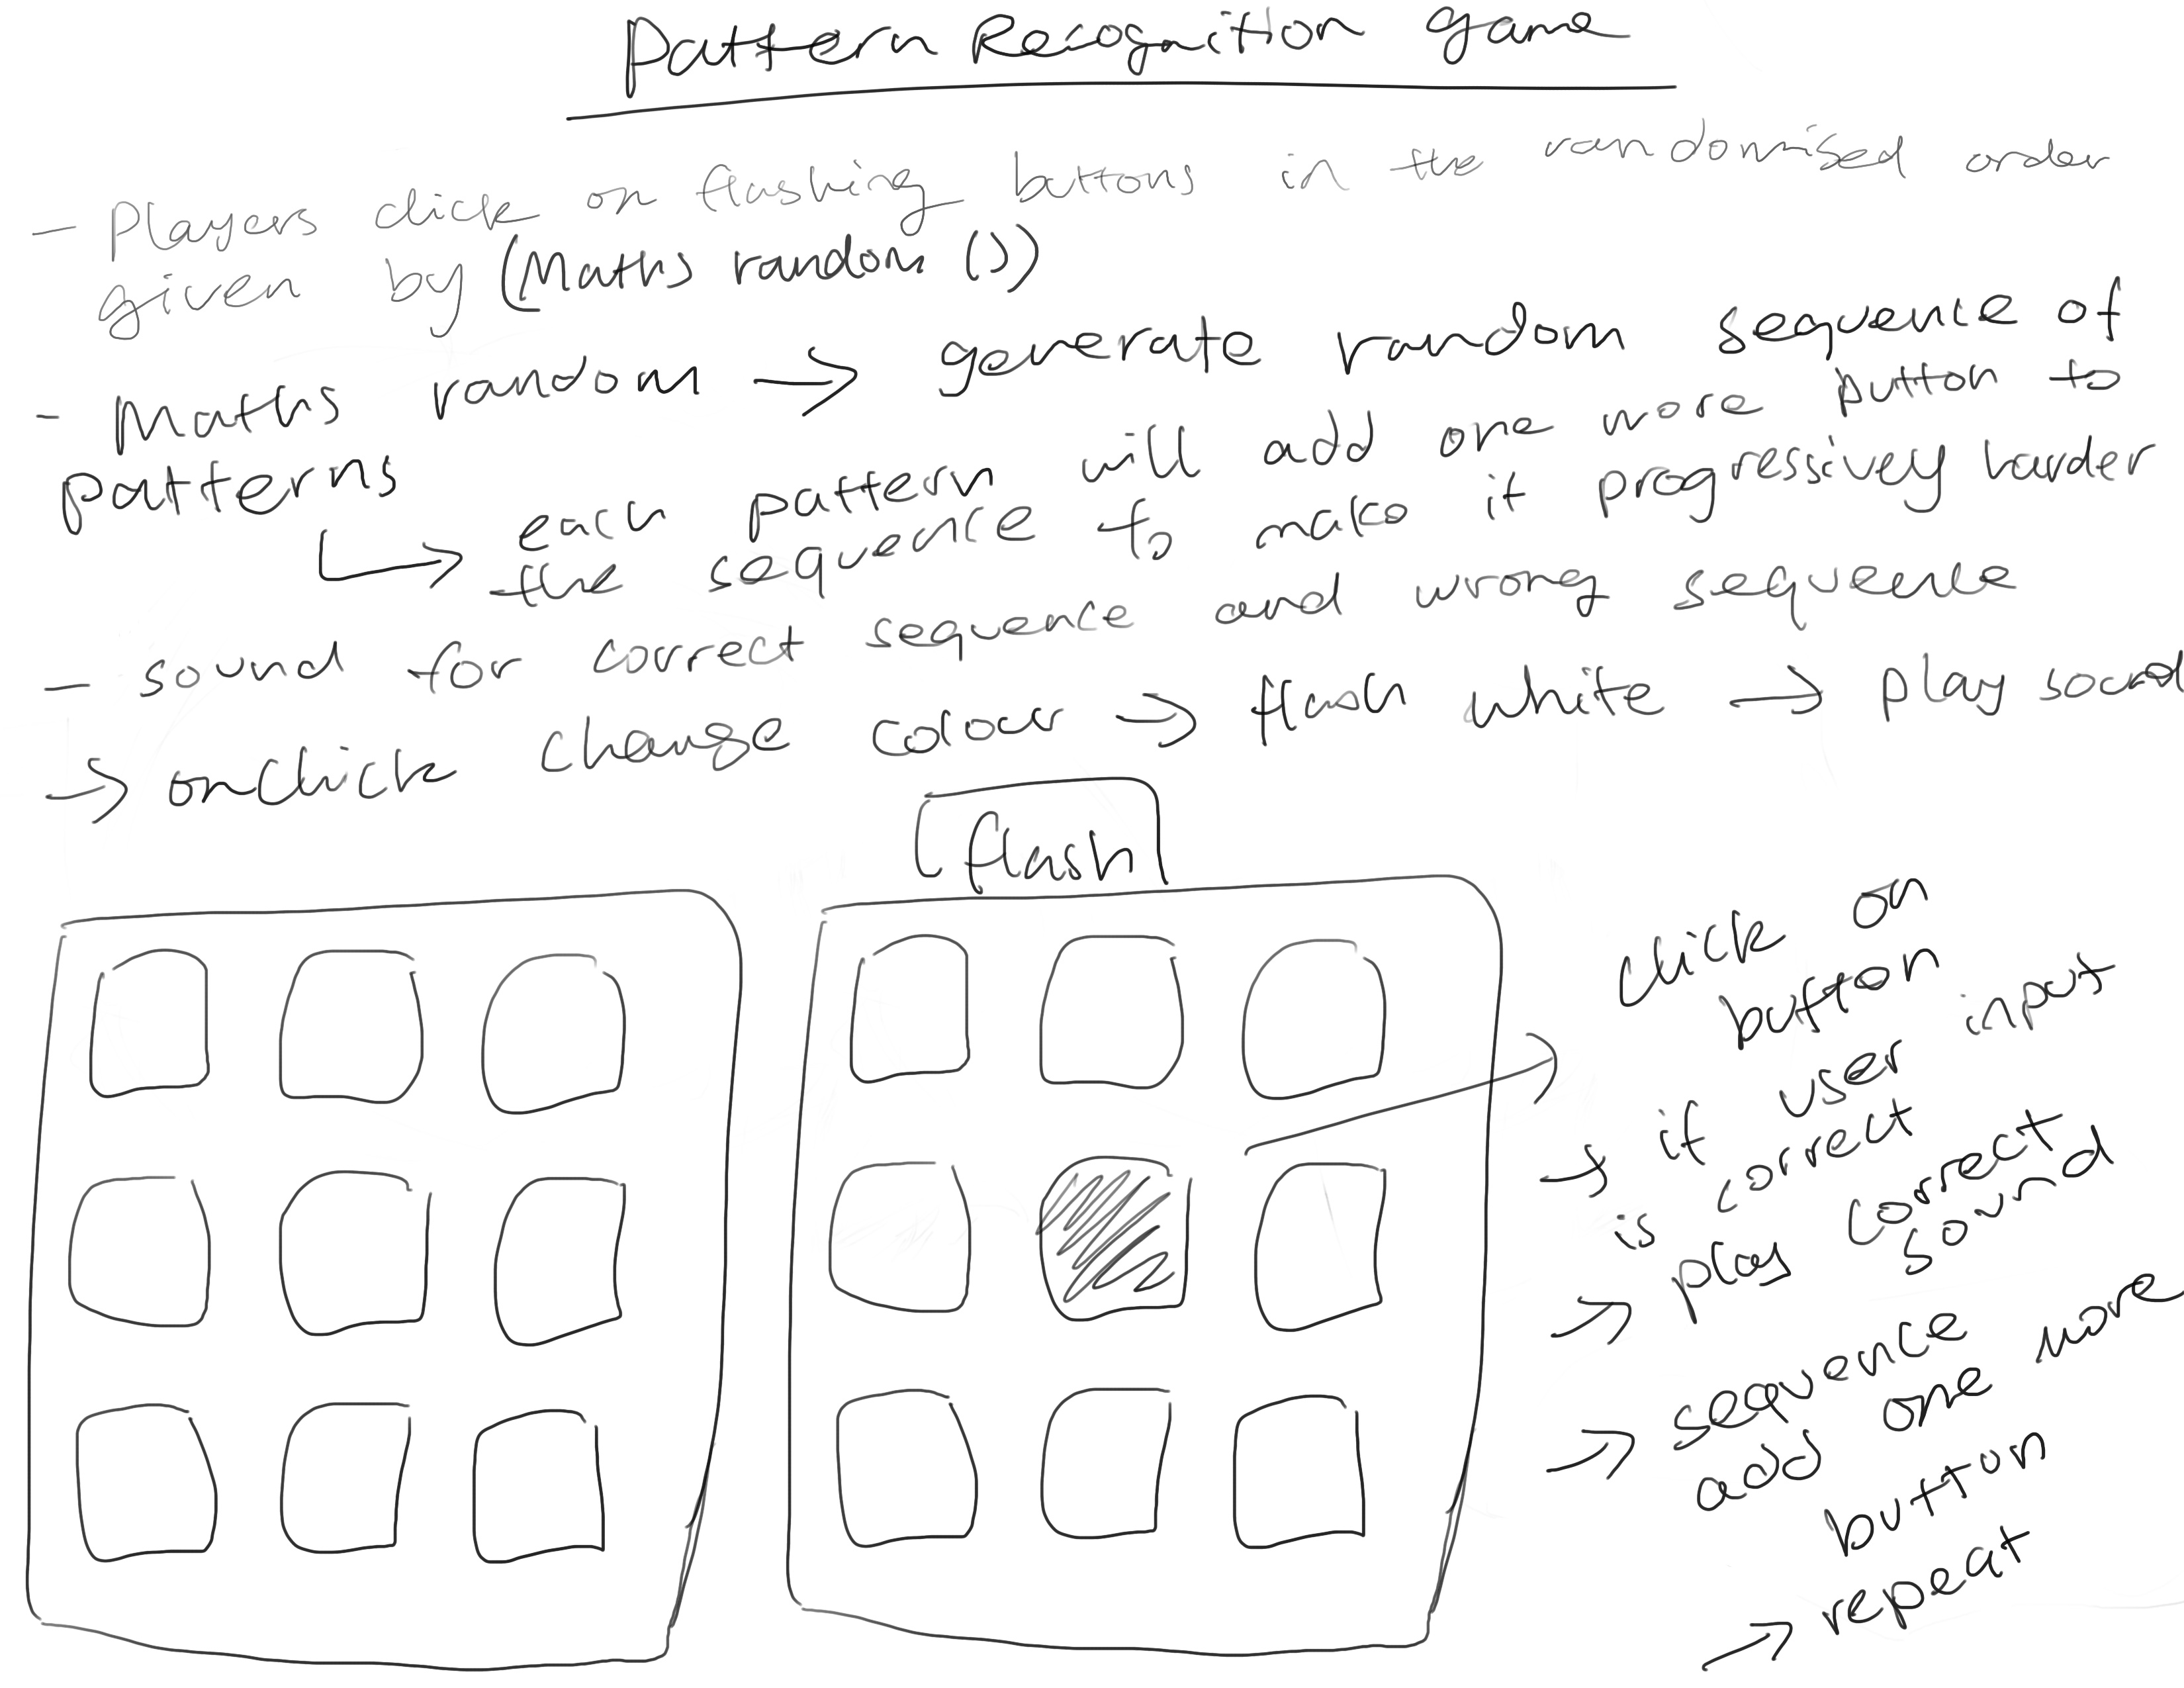 Pattern Recognition game
- Players click on flashing buttons in the randomised order
given by (Maths random ())
- Maths random → generate random sequence of
patterns
↳ each pattern will add one more button to
the sequence to make it progressivey harder
- sound for correct sequence and wrong sequence
→ onClick change colour → flash white → play sound
flash
click on
button
→ if user input
is correct
→ play correct
sound
→ sequence
add one more
button
→ repeat